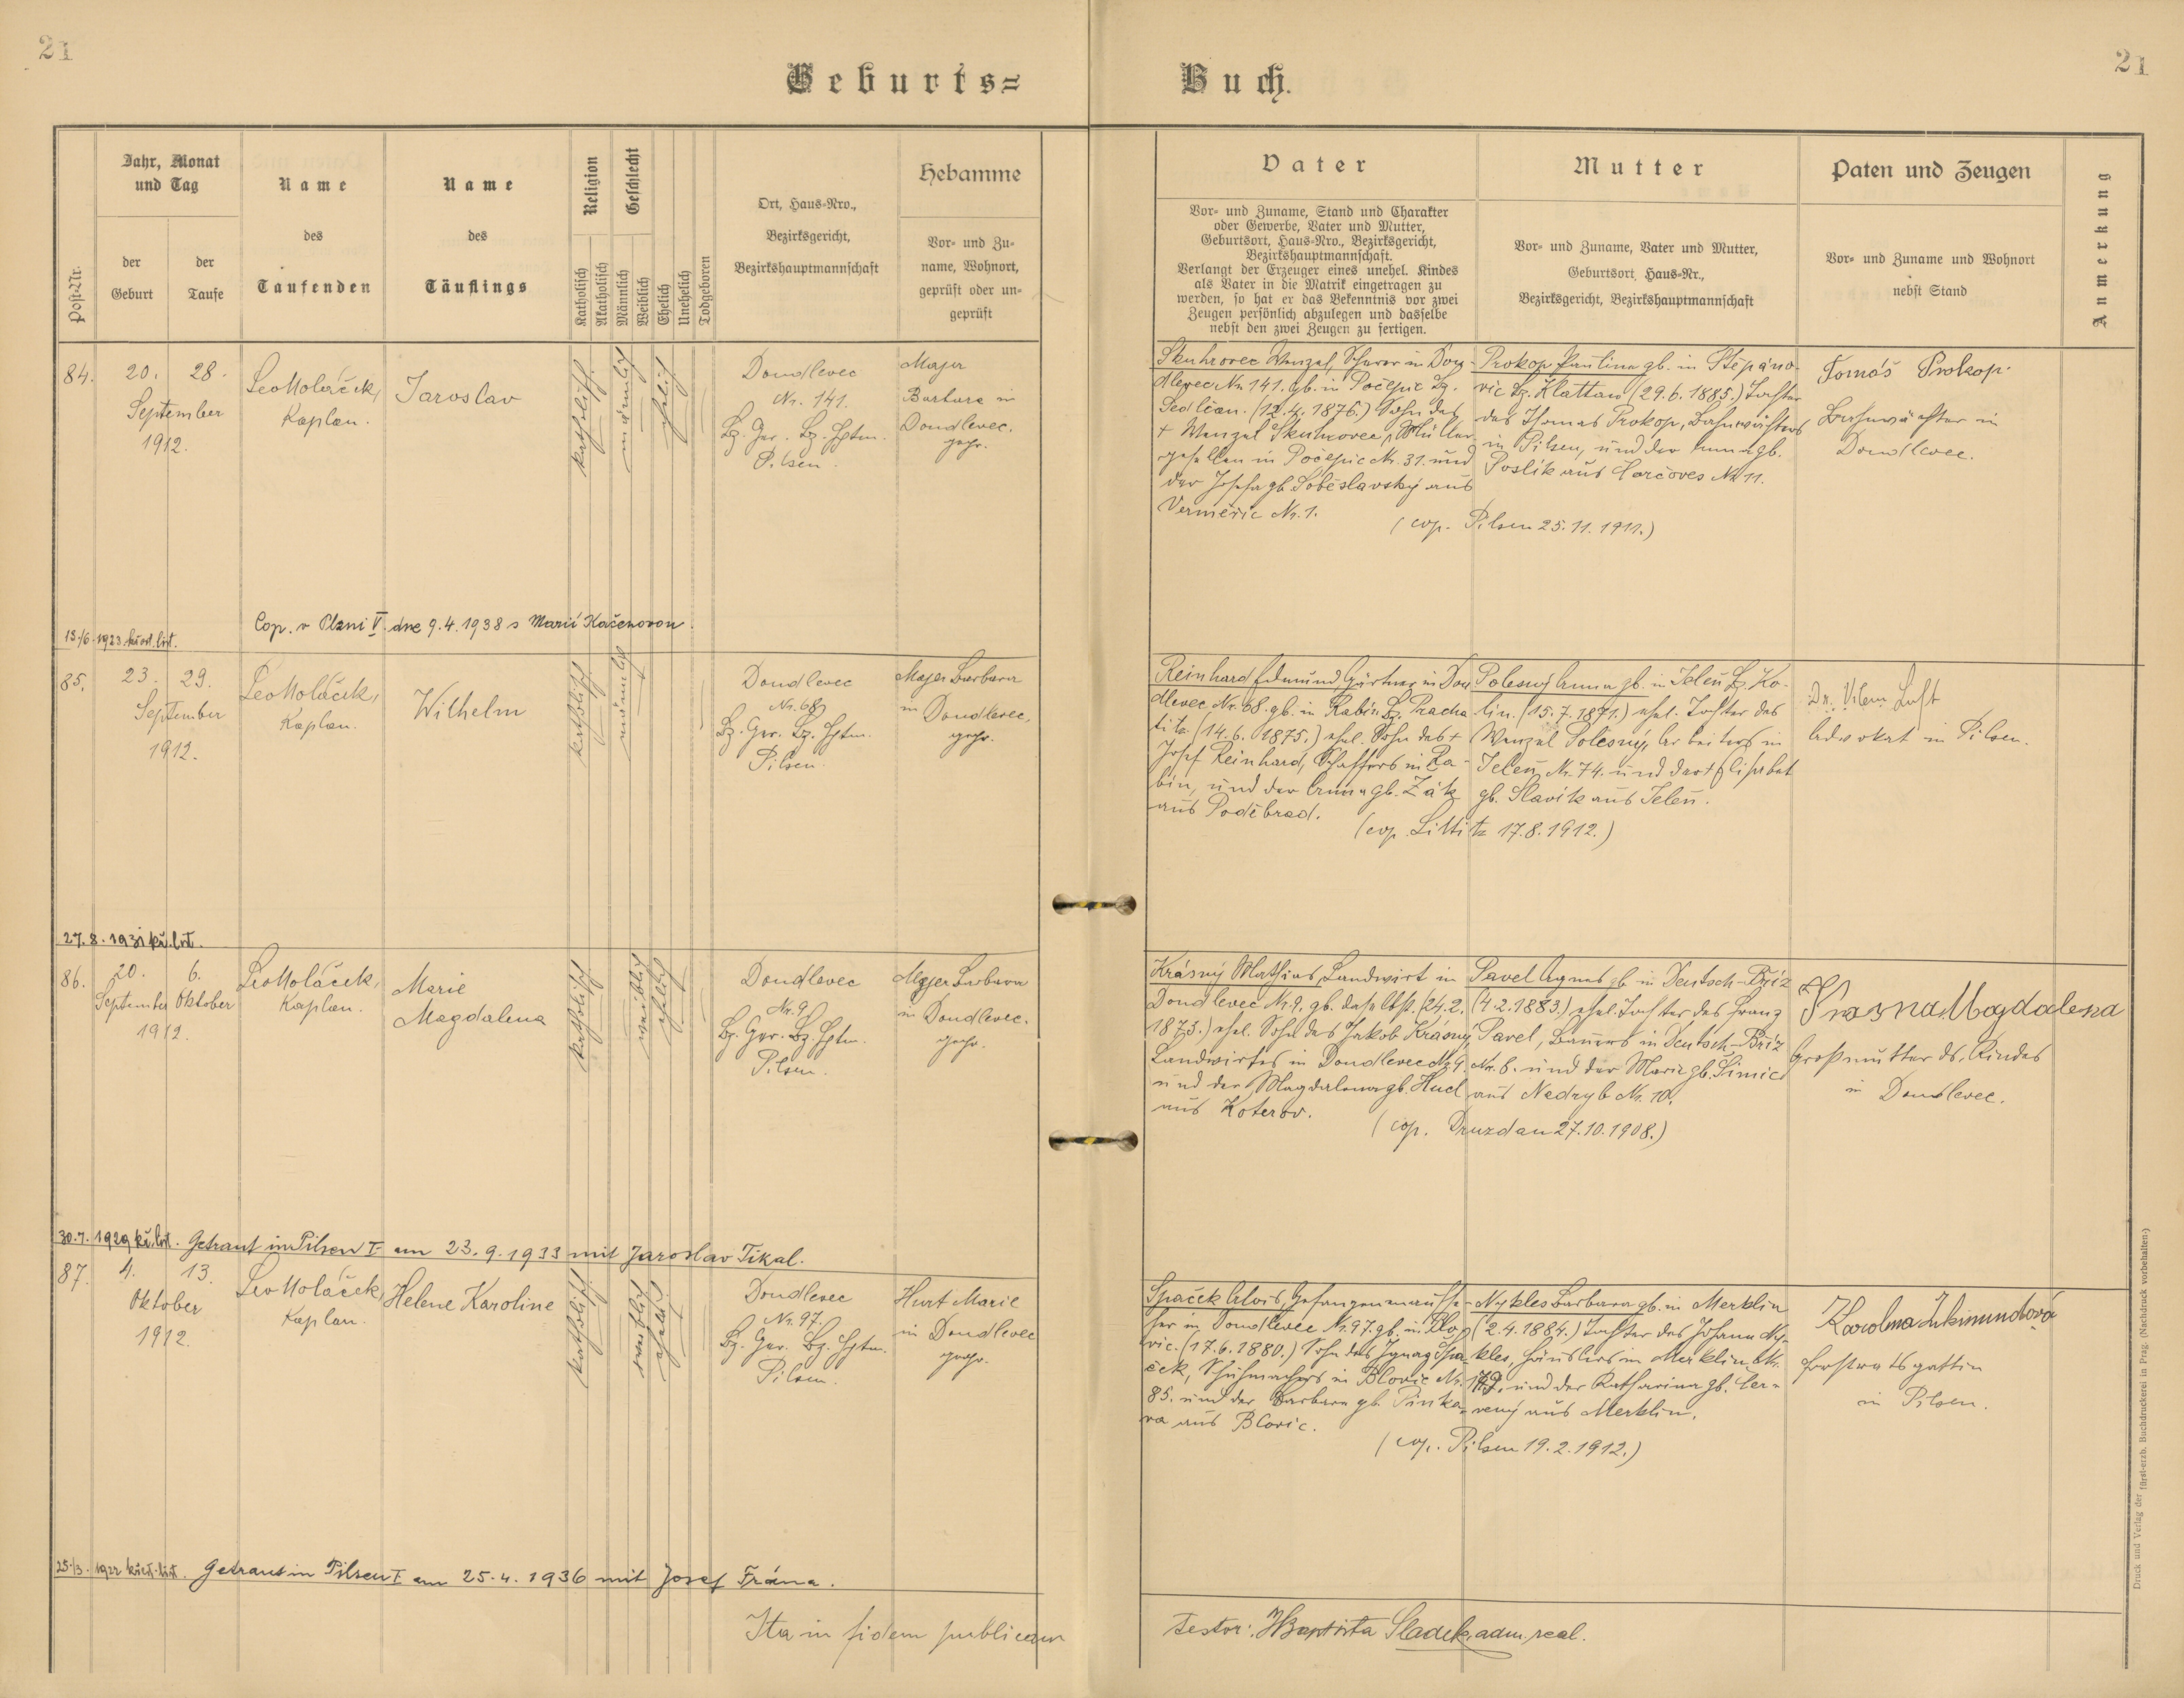 21
21
Geburts=
Buch.
Post-Nr.
Jahr, Monat
und Tag
der
Geburt
der
Taufe
Name
des
Taufenden
Name
des
Täuflings
Religion
Katholisch
Akatholisch
Geschlecht
Männlich
Weiblich
Ehelich
Unehelich
Todgeboren
Ort, Haus=Nro.,
Bezirksgericht,
Bezirkshauptmannschaft
Hebamme
Vor= und Zu=
name, Wohnort,
geprüft oder un=
geprüft
Vater
Vor= und Zuname, Stand und Charakter
oder Gewerbe, Vater und Mutter,
Geburtsort, Haus=Nro., Bezirksgericht,
Bezirkshauptmannschaft.
Verlangt der Erzeuger eines unehel. Kindes
als Vater in die Matrik eingetragen zu
werden, so hat er das Bekenntnis vor zwei
Zeugen persönlich abzulegen und dasselbe
nebst den zwei Zeugen zu fertigen.
Mutter
Vor= und Zuname, Vater und Mutter,
Geburtsort, Haus=Nr.,
Bezirksgericht, Bezirkshauptmannschaft
Paten und Zeugen
Vor= und Zuname und Wohnort
nebst Stand
Anmerkung
84.
20. 28.
September
1912.
Leo Holáček,
Kaplan.
Jaroslav
katholisch
männlich
ehelich
Doudlevec
Nr. 141.
Bz. Ger. Bz. Hptm.
Pilsen.
Majer
Barbara in
Doudlevec.
gepr.
Skuhrovec Wenzel, in Dou=
dlevec Nr. 141. gb. in Počepic Bz.
Sedlčan. (12.4.1876.) Sohn des
+ Wenzel Skuhrovec, Müller=
gesellen in Počepic Nr. 31. und
der Josefa gb. Soběslavský aus
Vermeřic Nr. 1.
Prokop Paulina gb. in Štěpáno=
vic Bz. Klattau (29.6.1885.) Tochter
des Thomas Prokop, Bahnwächters
in Pilsen, und der Anna gb.
Poslík aus Horčoves Nr. 11.
(cop. Pilsen 25.11.1911.)
Tomáš Prokop.
Bahnwächter in
Doudlevec.
Cop. v Plzni V. dne 9.4.1938 s Marií Kačerovou.
13./6. 1923 křest. list.
85.
23. 29.
September
1912.
Leo Holáček,
Kaplan.
Wilhelm
katholisch
männlich
Doudlevec
Nr. 68
Bz. Ger. Bz. Hptm.
Pilsen.
Majer Barbara
in Doudlevec,
gepr.
Reinhard Edmund, Gärtner in Dou
dlevec Nr. 68. gb. in Rabín Bz. Pracha
titz (14.6.1875.) ehel. Sohn des +
Josef Reinhard, Schaffers in Ra=
bin, und der Anna gb. Žák
aus Poděbrad.
Polesný Anna gb. in Jeleň Bz. Ko=
lin. (15.7.1871.) ehel. Tochter des
Wenzel Polesný, Arbeiters in
Jeleň Nr. 74. und der + Elisabet
gb. Slavík aus Jeleň.
(cop. Littitz 17.8.1912.)
Dr. Vilem Luft
Advokat in Pilsen.
27.8.1931 kř. list.
86.
20. 6.
September Oktober
1912.
Leo Holáček,
Kaplan.
Marie
Magdalena
katholisch
weiblich
ehelich
Doudlevec
Nr. 9
Bz. Ger. Bz. Hptm.
Pilsen.
Majer Barbara
in Doudlevec.
gepr.
Krásný Mathias, Landwirt in
Doudlevec Nr. 9. gb. daselbst. (24.2.
1873.) ehel. Sohn des Jakob Krásný,
Landwirtes in Doudlevec Nr. 9.
und der Magdalena gb. Hucl
aus Koterov.
Pavel Agnes gb. in Deutsch-Bříz
(4.2.1883.) ehel. Tochter des Franz
Pavel, Bauers in Deutsch-Bříz
Nr. 6. und der Marie gb. Šimic
aus Nedryb Nr. 10.
(cop. Druzdau 27.10.1908.)
Krasna Magdalena
Großmutter ds. Kindes
in Doudlevec.
30.7.1929 kř. list. Getraut in Pilsen I. am 23.9.1933 mit Jaroslav Tikal.
87.
4. 13.
Oktober
1912.
Leo Holáček,
Kaplan.
Helene Karoline
katholisch
weiblich
ehelich
Doudlevec
Nr. 97.
Bz. Ger. Bz. Hptm.
Pilsen.
Hurt Marie
in Doudlevec
gepr.
Špaček Alois, Gefangenaufse=
her in Doudlevec Nr. 97. gb. in Blo=
vic. (17.6.1880.) Sohn des Ignaz Špa=
ček, Schuhmachers in Blovic Nr.
85. und der Barbara gb. Pinka=
va aus Blovic.
Nykles Barbara gb. in Merklin
(2.4.1884.) Tochter des Johann Ny=
kles, Häuslers in Merklin Nr.
179. und der Katharina gb. Čer=
vený aus Merklin.
(cop. Pilsen 19.2.1912.)
Forstratsgattin
in Pilsen.
25./3. 1922 křest. list. Getraut in Pilsen I am 25.4.1936 mit Josef Frána.
Ita in fidem publicam
testor: Baptista Sladek, adm. real.
Druck und Verlag der fürst-erzb. Buchdruckerei in Prag. (Nachdruck vorbehalten.)